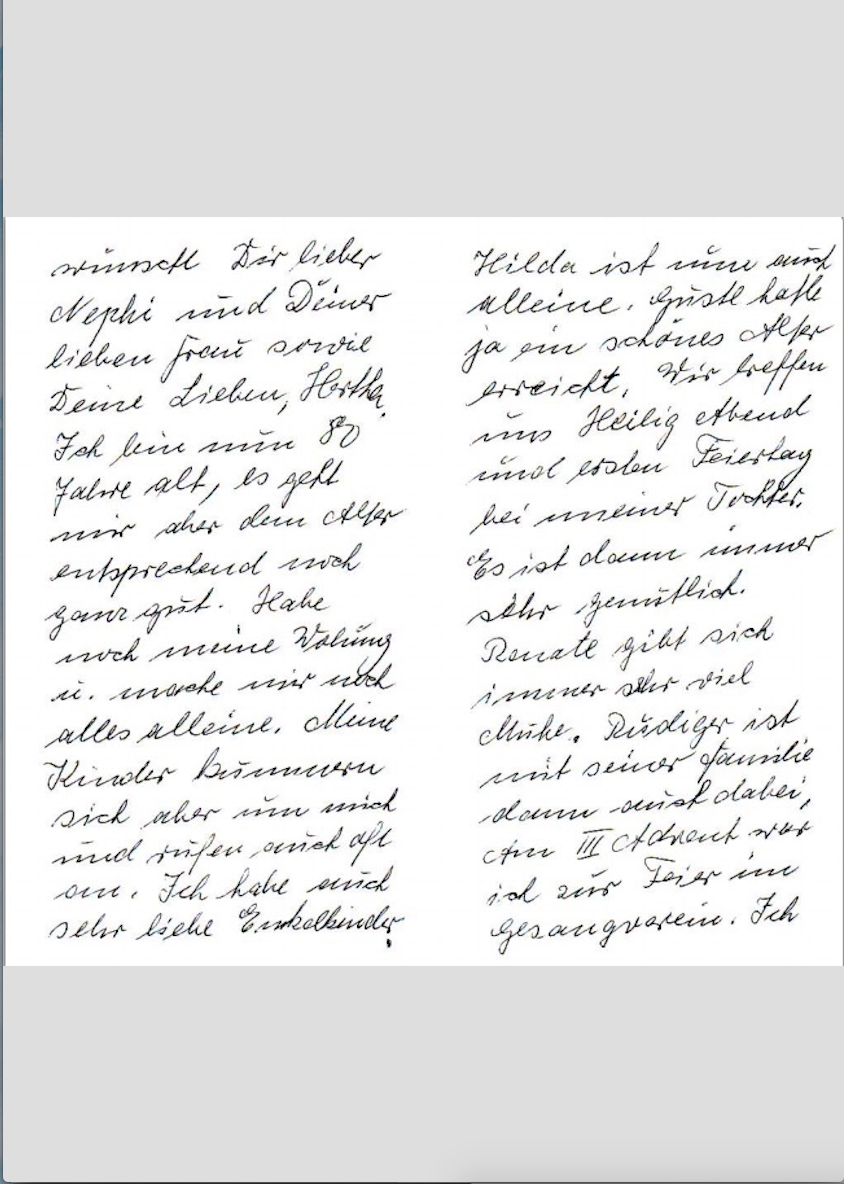 wünscht Dir lieber
Nephi und Deiner
lieben Frau sowie
Deine Lieben, Hertha.
Ich bin nun 80
Jahre alt, es geht
mir aber dem Alter
entsprechend noch
ganz gut. Habe
noch meine Wohung
u. mache mir noch
alles alleine. Meine
Kinder kümmern
sich aber um mich
und rufen auch oft
an. Ich habe auch
sehr liebe Enkelkinder.
Hilda ist nun auch
alleine. Gustl hatte
ja ein schönes Alter
erreicht. Wir treffen
uns Heilig Abend
und ersten Feiertag
bei meiner Tochter.
Es ist dann immer
sehr gemütlich.
Renate gibt sich
immer sehr viel
Mühe. Rüdiger ist
mit seiner Familie
dann auch dabei,
Am III Advent war
ich zur Feier im
Gesangverein. Ich